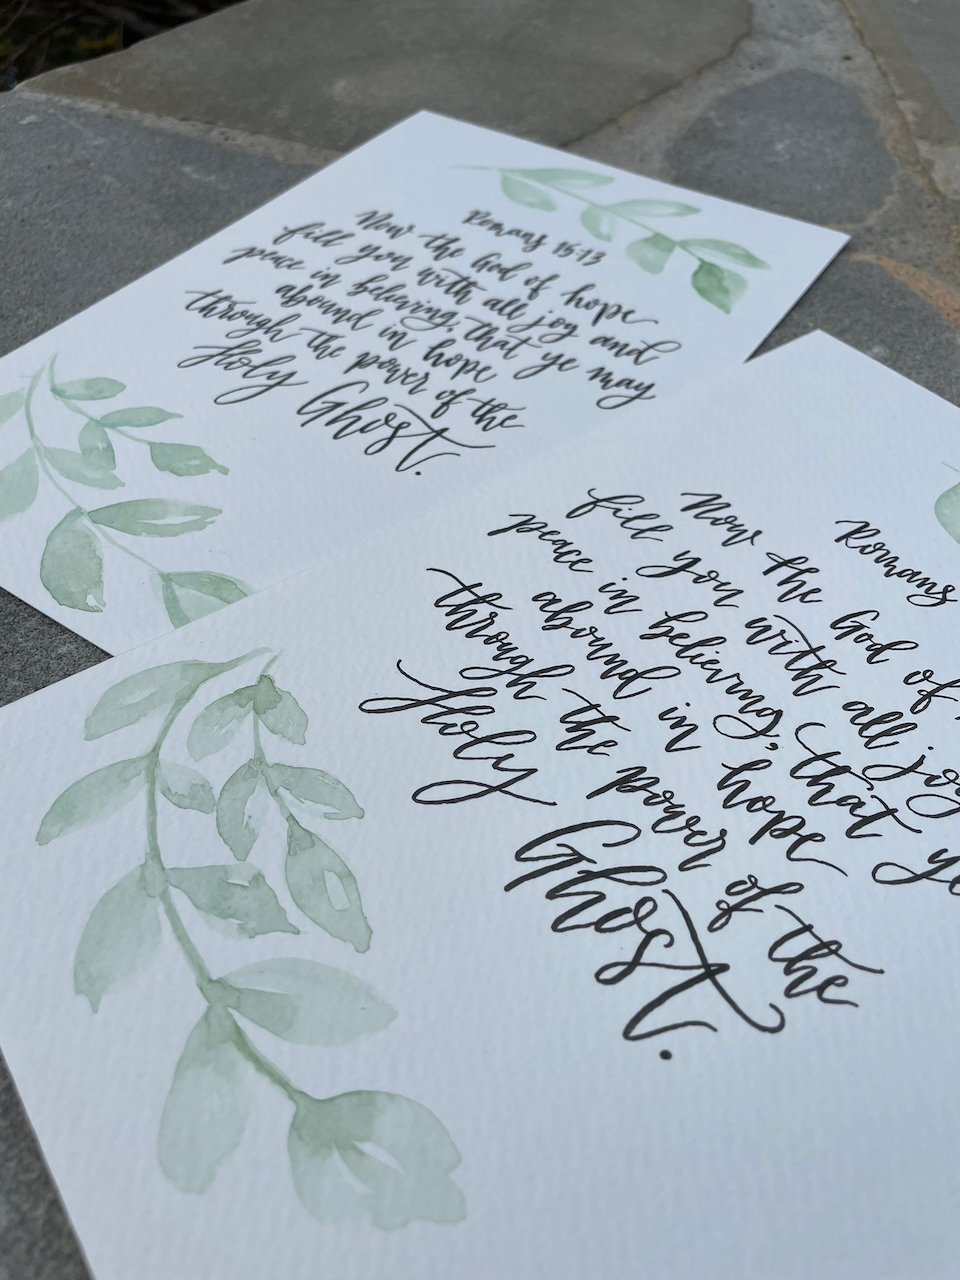 Romans 15:13
Now the God of hope
fill you with all joy and
peace in believing, that ye may
abound in hope
through the power of the
Holy Ghost.
Romans
Now the God of
fill you with all joy
peace in believing, that ye
abound in hope
through the power of the
Holy Ghost.